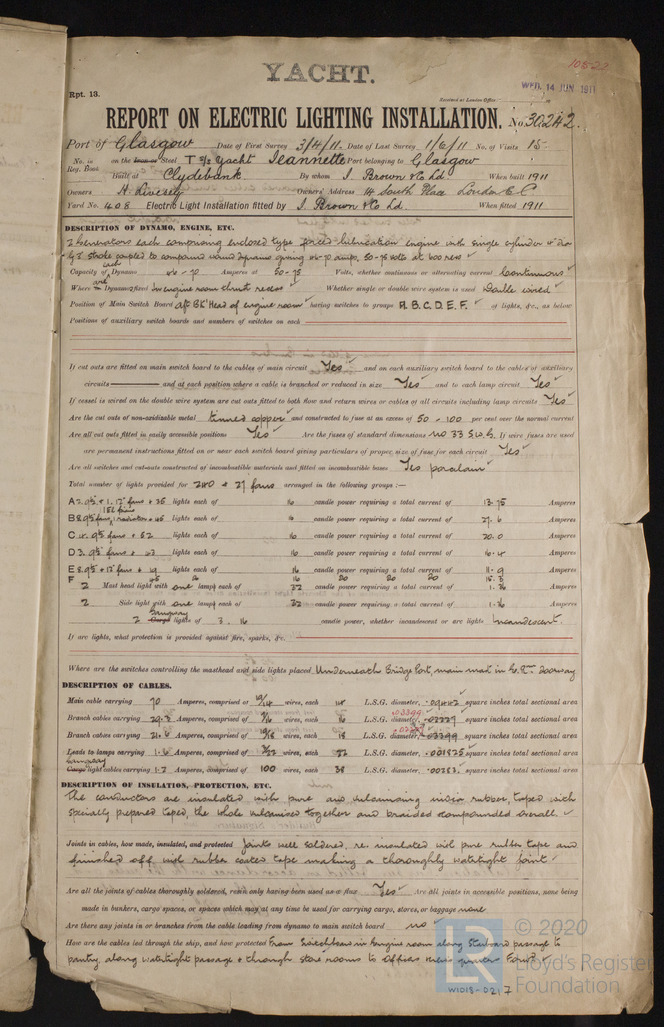 YACHT.
10822
Rpt. 13.
Received at London Office
WED. 14 JUN. 1911
REPORT ON ELECTRIC LIGHTING INSTALLATION. No. 30242.
Port of Glasgow Date of First Survey 3/4/11. Date of Last Survey 1/6/11 No. of Visits 15
No. in Reg. Book on the Iron or Steel Yacht Jeannette Port belonging to Glasgow
Built at Clydebank By whom J. Brown & Co Ld When built 1911
Owners H. Livesey Owners' Address 14 South Place London E C
Yard No. 408 Electric Light Installation fitted by J. Brown & Co Ld When fitted 1911
DESCRIPTION OF DYNAMO, ENGINE, ETC.
2 Generators each comprising enclosed type forced lubrication engine with single cylinder
stroke coupled to compound wound dynamo giving 70 amps. 50-75 volts at 600 revs
Capacity of each Dynamo 70 Amperes at 50-75 Volts, whether continuous or alternating current Continuous
Where are Dynamos fixed In engine room thrust recess Whether single or double wire system is used Double wired
Position of Main Switch Board aft Bk'Head of engine room having switches to groups A. B. C. D. E. F. of lights, &c., as below
Positions of auxiliary switch boards and numbers of switches on each
If cut outs are fitted on main switch board to the cables of main circuit Yes and on each auxiliary switch board to the cables of auxiliary
circuits and at each position where a cable is branched or reduced in size Yes and to each lamp circuit Yes
If vessel is wired on the double wire system are cut outs fitted to both flow and return wires or cables of all circuits including lamp circuits Yes
Are the cut outs of non-oxidizable metal tinned copper and constructed to fuse at an excess of 50 - 100 per cent over the normal current
Are all cut outs fitted in easily accessible positions Yes Are the fuses of standard dimensions no 33 S.W.G. If wire fuses are used
are permanent instructions fitted on or near each switch board giving particulars of proper size of fuse for each circuit Yes
Are all switches and cut-outs constructed of incombustible materials and fitted on incombustible bases Yes porcelain
Total number of lights provided for 240 & 27 fans arranged in the following groups :—
A 2.9" & 1. 12" fans & 35 lights each of 16 candle power requiring a total current of 13.75 Amperes
B 8.9" fans, 1 radiator & 45 lights each of 16 candle power requiring a total current of 27.6 Amperes
C 4.9" fans & 52 lights each of 16 candle power requiring a total current of 20.0 Amperes
D 3.9" fans & lights each of 16 candle power requiring a total current of Amperes
E 8.9" & 12" fans & 19 lights each of 16 candle power requiring a total current of 11.9 Amperes
F
2 Mast head light with one lamp each of 32 candle power requiring a total current of Amperes
2 Side light with one lamp each of 32 candle power requiring a total current of Amperes
2 Gangway Cargo lights of 3. 16 candle power, whether incandescent or arc lights Incandescent.
If arc lights, what protection is provided against fire, sparks, &c.
Where are the switches controlling the masthead and side lights placed Underneath Bridge Port, main mast in doorway
DESCRIPTION OF CABLES.
Main cable carrying 70 Amperes, comprised of 19/14 wires, each 14 L.S.G. diameter, .09442 square inches total sectional area
Branch cables carrying Amperes, comprised of wires, each 16 L.S.G. diameter, square inches total sectional area
Branch cables carrying Amperes, comprised of 19/18 wires, each 18 L.S.G. diameter, .03399 square inches total sectional area
Leads to lamps carrying 1.6 Amperes, comprised of 3/22 wires, each 22 L.S.G. diameter, .001825 square inches total sectional area
Gangway Cargo light cables carrying Amperes, comprised of 100 wires, each 38 L.S.G. diameter, .00283 square inches total sectional area
DESCRIPTION OF INSULATION, PROTECTION, ETC.
The conductors are insulated with pure and vulcanising india rubber, taped with
specially prepared taped, the whole vulcanised together and braided & compounded overall.
Joints in cables, how made, insulated, and protected Joints well soldered, re insulated with pure rubber tape and
finished off with rubber coated tape making a thoroughly watertight joint
Are all the joints of cables thoroughly soldered, resin only having been used as a flux Yes Are all joints in accessible positions, none being
made in bunkers, cargo spaces, or spaces which may at any time be used for carrying cargo, stores, or baggage none
Are there any joints in or branches from the cable leading from dynamo to main switch board no
How are the cables led through the ship, and how protected From switchboard in Engine room along Starboard passage to
pantry, along watertight passage & through store rooms to Officers
LR
© 2020
Lloyd's Register
Foundation
W1018-0217